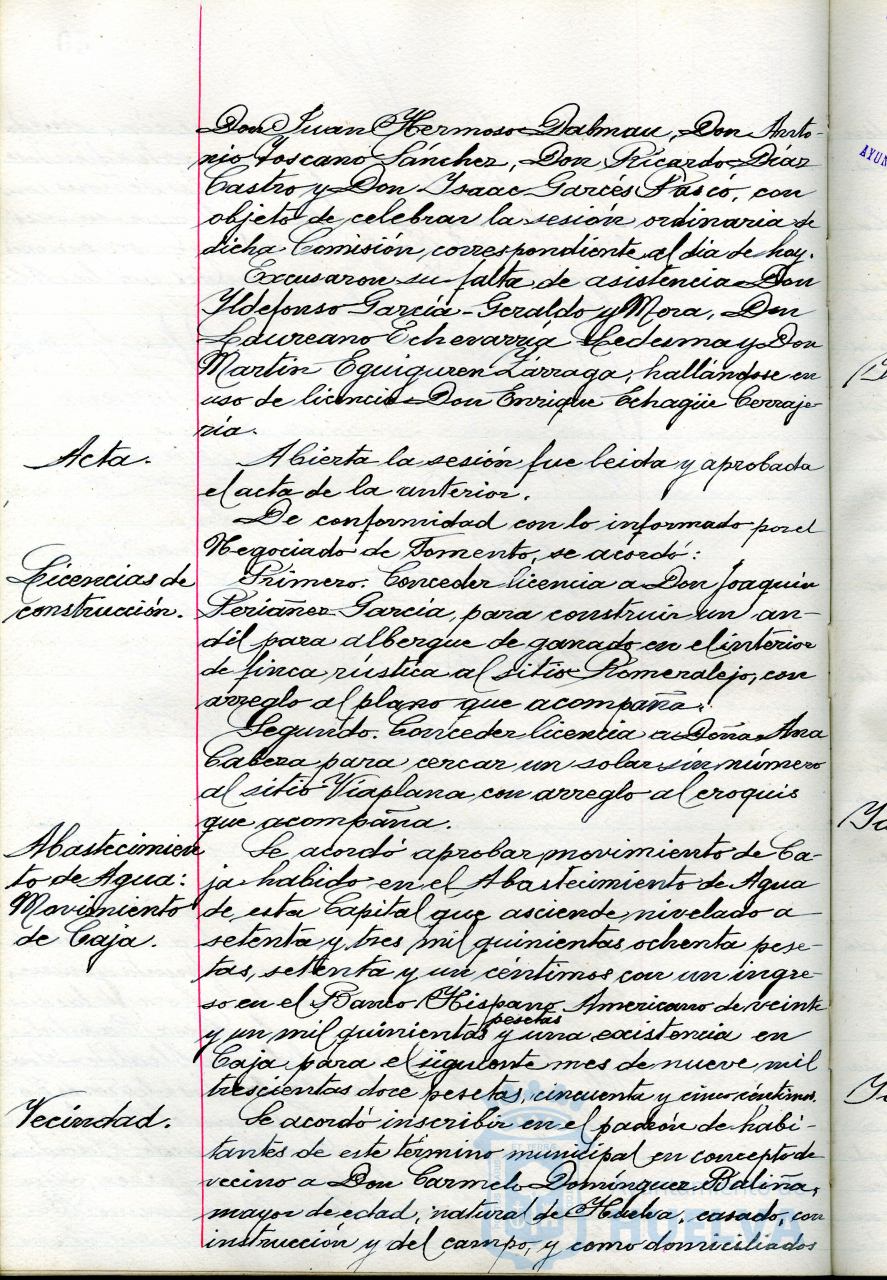 Don Juan Hermoso Dalmau, Don Anto-
nio Toscano Sánchez, Don Ricardo Díaz
Castro y Don Isaac Garcés Pascó, con
objeto de celebrar la sesión ordinaria de
dicha Comisión, correspondiente al día de hoy.
Excusaron su falta de asistencia Don
Ildefonso García-Geraldo y Mora, Don
Laureano Echevarría Ledesma y Don
Martín Eguiguren Zárraga, hallándose en
uso de licencia Don Enrique Echagüe Cerraje-
ría.
Acta.
Abierta la sesión fue leida y aprobada
el acta de la anterior.
De conformidad con lo informado por el
Negociado de Fomento, se acordó:
Licencias de
construcción.
Primero. Conceder licencia a Don Joaquín
Periañez García, para construir un an-
dil para albergue de ganado en el interior
de finca rústica al sitio Romeralejo, con
arreglo al plano que acompaña.
Segundo. Conceder licencia a Doña Ana
Cabeza para cercar un solar sin número
al sitio Viaplana con arreglo al croquis
que acompaña.
Abastecimien
to de Agua:
Movimiento
de Caja.
Se acordó aprobar movimiento de Ca-
ja habido en el Abastecimiento de Agua
de esta Capital que asciende nivelado a
setenta y tres mil quinientas ochenta pese-
tas, setenta y un céntimos con un ingre-
so en el Banco Hispano Americano de veinte
y un mil quinientas pesetas y una existencia en
Caja para el siguiente mes de nueve mil
trescientas doce pesetas, cincuenta y cinco céntimos.
Vecindad.
Se acordó inscribir en el padrón de habi-
tantes de este término municipal en concepto de
vecino a Don Carmelo Domínguez Baliña,
mayor de edad, natural de Huelva, casado, con
instrucción y del campo, y como domiciliados
AYUN
Ayuntamiento de
HUELVA